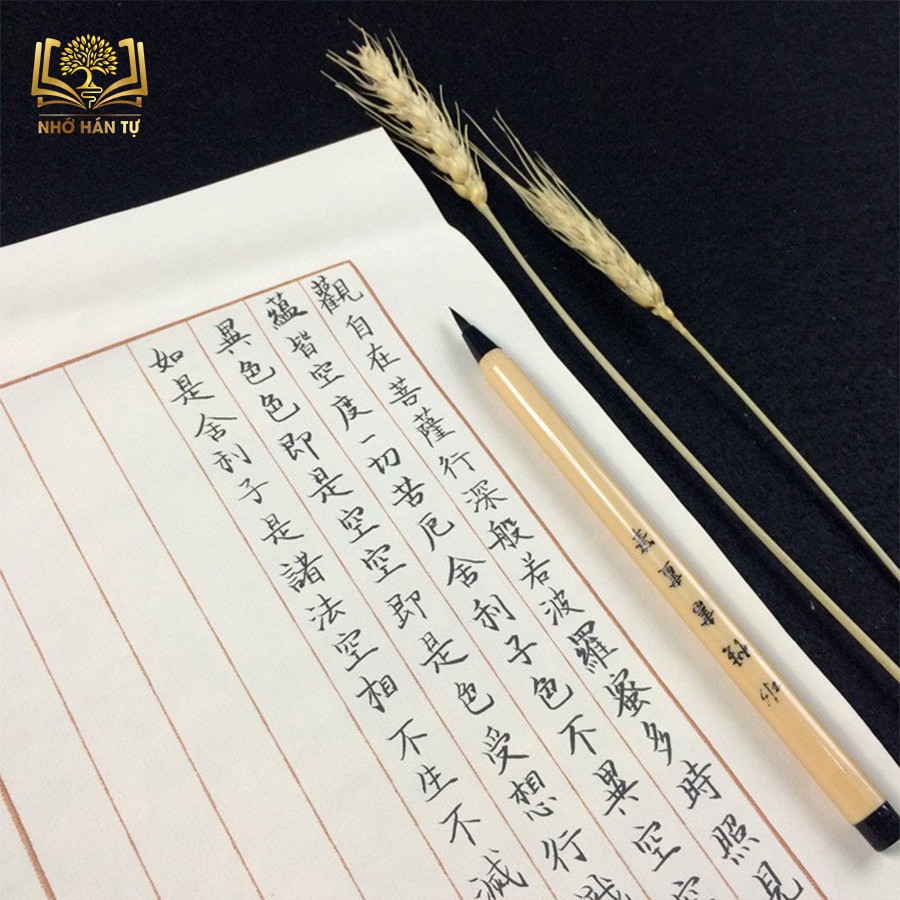 NHỚ HÁN TỰ
觀自在菩薩行深般若波羅蜜多時照見
蘊皆空度一切苦厄舍利子色不異空空
異色色即是空空即是色受想行識
如是舍利子是諸法空相不生不滅